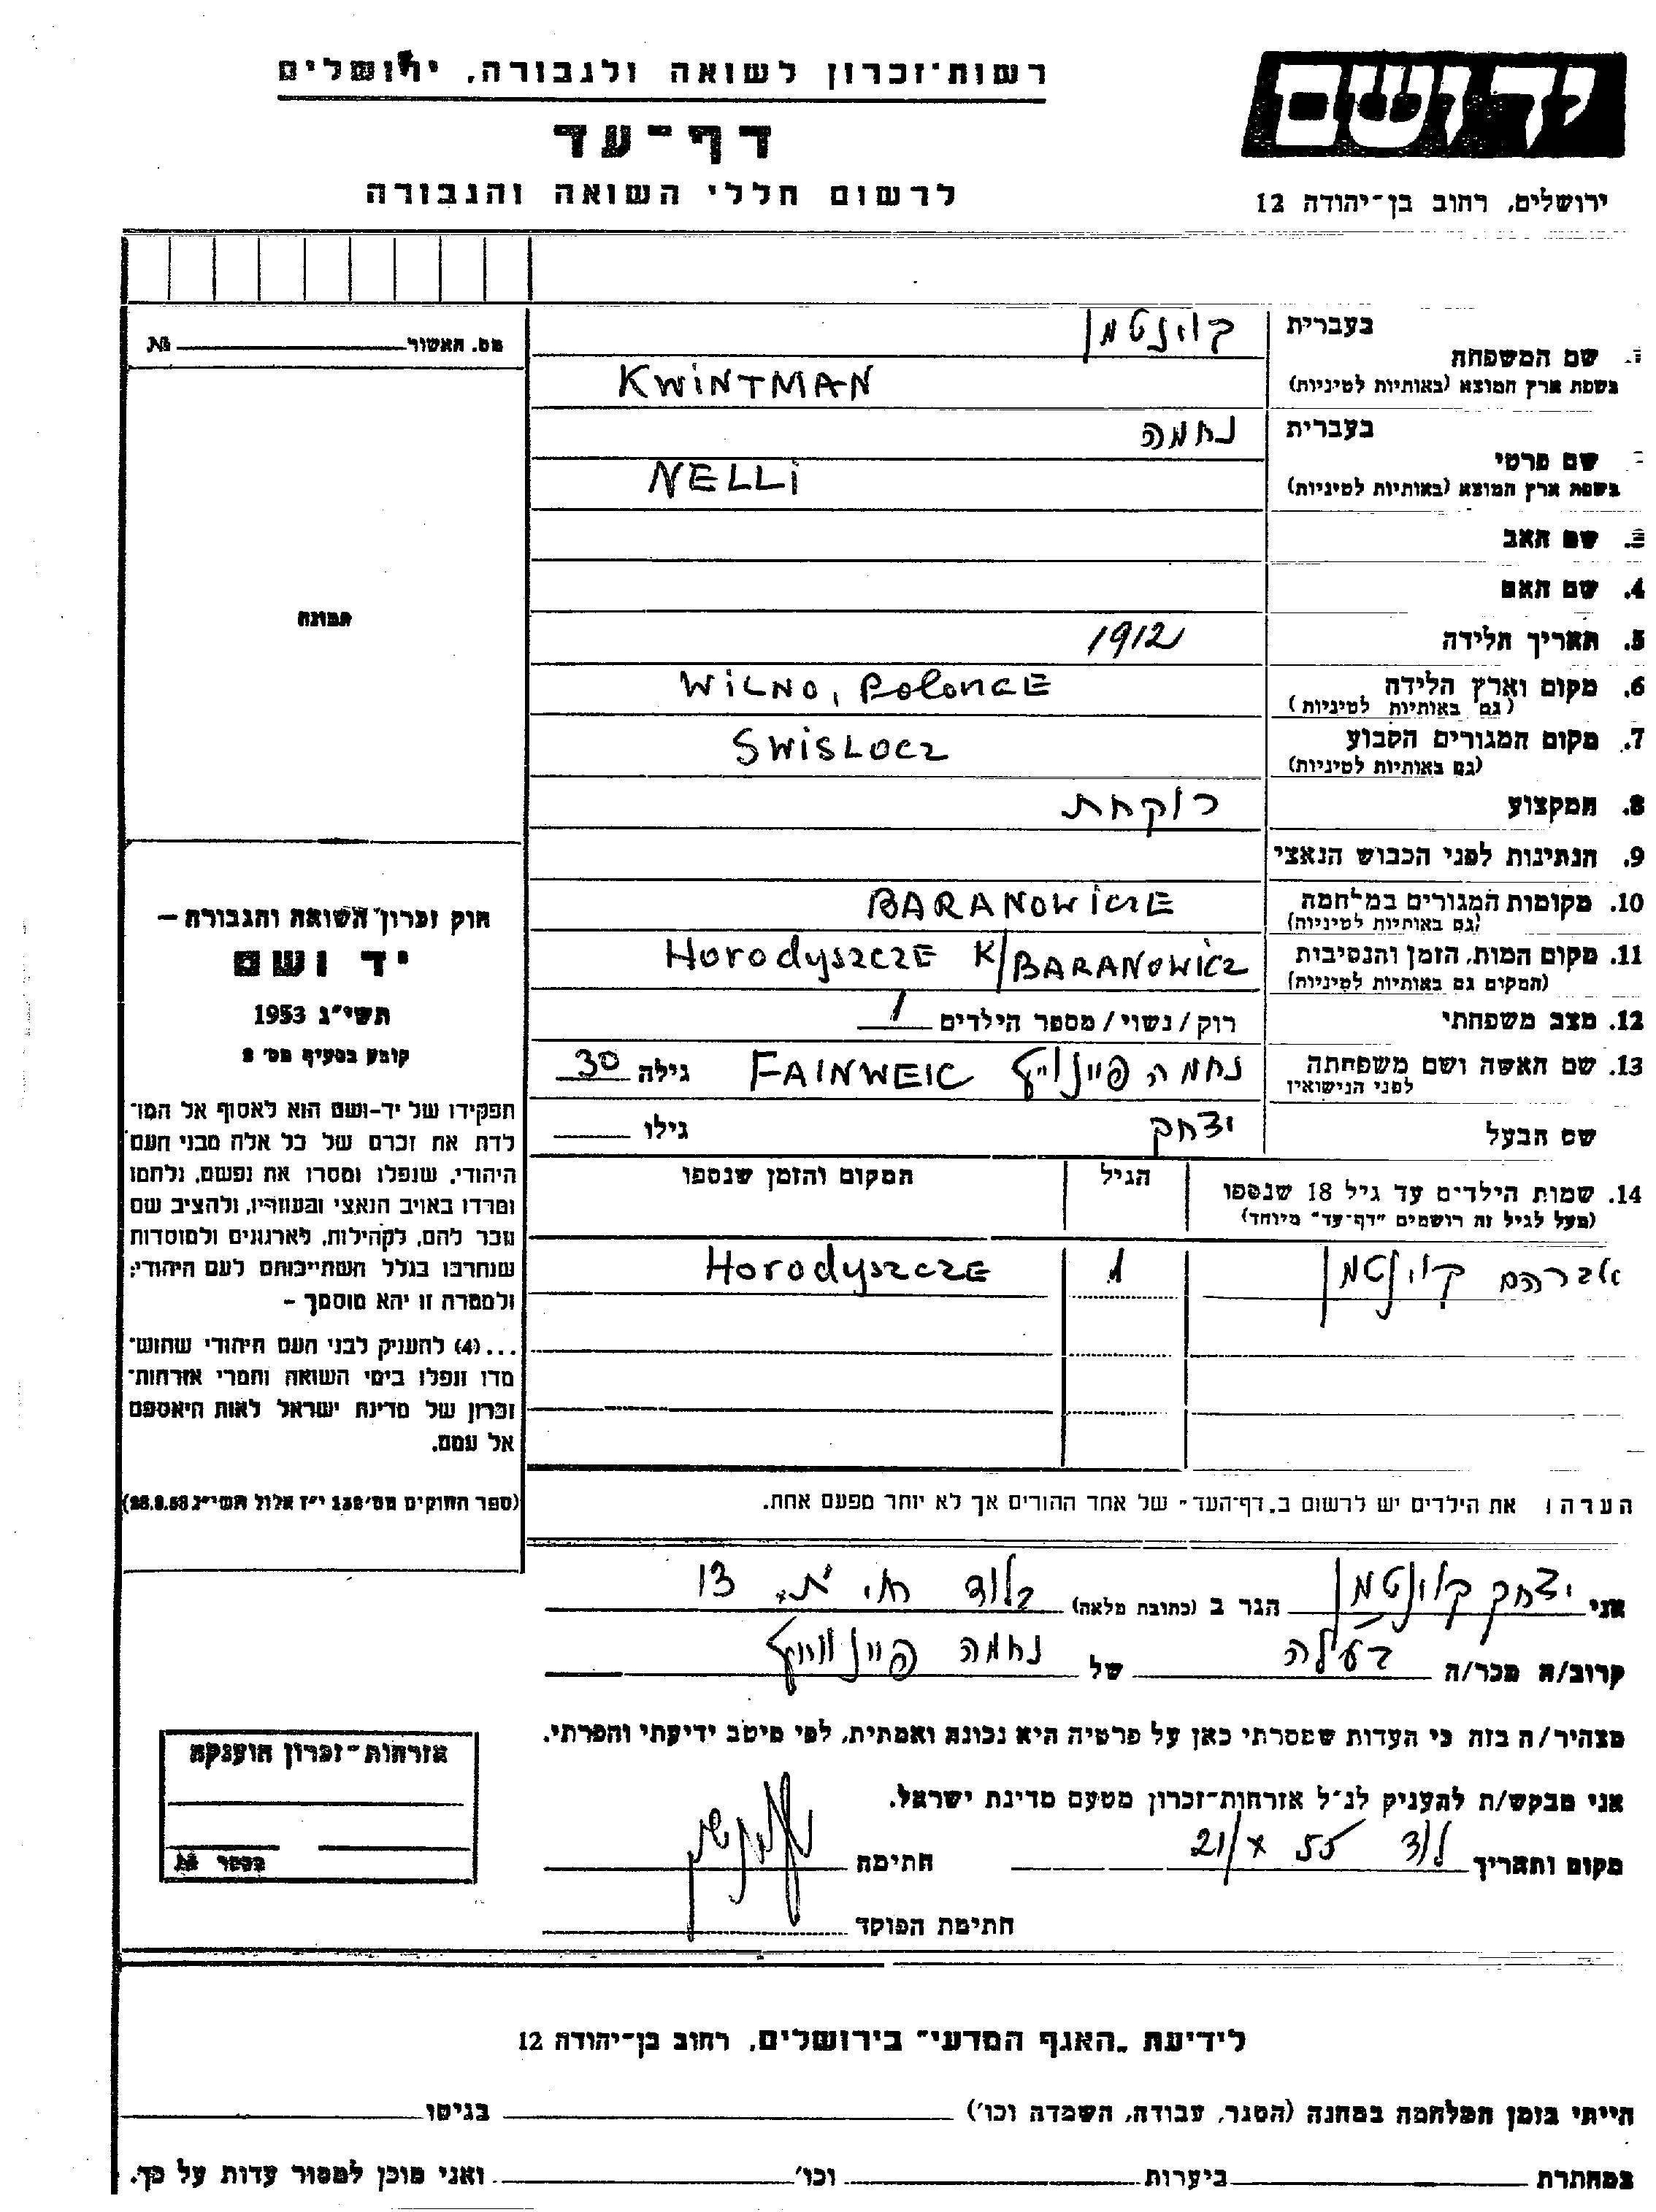 רשות־זכרון לשואה ולגבורה, ירושלים
דף־עד
לרשום חללי השואה והגבורה
יד ושם
ירושלים, רחוב בן־יהודה 12
מס. האשור № 
בעברית קוינטמן
1. שם המשפחה
בשפת ארץ המוצא (באותיות לטיניות) KWINTMAN
בעברית נחמה
שם פרטי
בשפת ארץ המוצא (באותיות לטיניות) NELLI
3. שם האב
4. שם האם
5. תאריך הלידה 1912
6. מקום וארץ הלידה WILNO, PolonGE
(גם באותיות לטיניות)
7. מקום המגורים הקבוע SWISLOCZ
(גם באותיות לטיניות)
8. המקצוע רוקחת
9. הנתינות לפני הכבוש הנאצי
10. מקומות המגורים במלחמה BARANOWICZE
(גם באותיות לטיניות)
11. מקום המות, הזמן והנסיבות HorodyszczE K/BARANOWICZ
(המקום גם באותיות לטיניות)
12. מצב משפחתי רוק/נשוי/מספר הילדים 1
13. שם האשה ושם משפחתה נחמה פיינווייץ FAINWEIC גילה 30
לפני הנישואין
שם הבעל יצחק גילו
14. שמות הילדים עד גיל 18 שנספו הגיל המקום והזמן שנספו
(מעל לגיל זה רושמים "דף־עד" מיוחד)
אברהם קוינטמן 1 HorodyszczE
הערה: את הילדים יש לרשום ב„דף־העד" של אחד ההורים אך לא יותר מפעם אחת.
תמונה
חוק זכרון השואה והגבורה –
יד ושם
תשי"ג 1953
קובע בסעיף מס' 2
תפקידו של יד-ושם הוא לאסוף אל המו־
לדת את זכרם של כל אלה מבני העם
היהודי, שנפלו ומסרו את נפשם, נלחמו
ומרדו באויב הנאצי ובעוזריו, ולהציב שם
וזכר להם, לקהילות, לארגונים ולמוסדות
שנחרבו בגלל השתייכותם לעם היהודי;
ולמטרה זו יהא מוסמך –
...(4) להעניק לבני העם היהודי שהוש־
מדו ונפלו בימי השואה והמרי אזרחות־
זכרון של מדינת ישראל לאות היאספם
אל עמם.
(ספר החוקים מס' 132 י"ז אלול תשי"ג 28.8.53)
אני יצחק קוינטמן הגר ב (כתובת מלאה) בלוד ת. 13
קרוב/ה מכר/ה בעלה של נחמה פיינווייץ
מצהיר/ה בזה כי העדות שמסרתי כאן על פרטיה היא נכונה ואמתית, לפי מיטב ידיעתי והכרתי.
אני מבקש/ת להעניק לנ"ל אזרחות־זכרון מטעם מדינת ישראל.
מקום ותאריך לוד 21/X 55 חתימה
חתימת הפוקד
אזרחות־זכרון הוענקה
№
לידיעת „האגף המדעי" בירושלים, רחוב בן־יהודה 12
הייתי בזמן המלחמה במחנה (הסגר, עבודה, השמדה וכו') בגיטו
במחתרת ביערות וכו' ואני מוכן למסור עדות על כך.